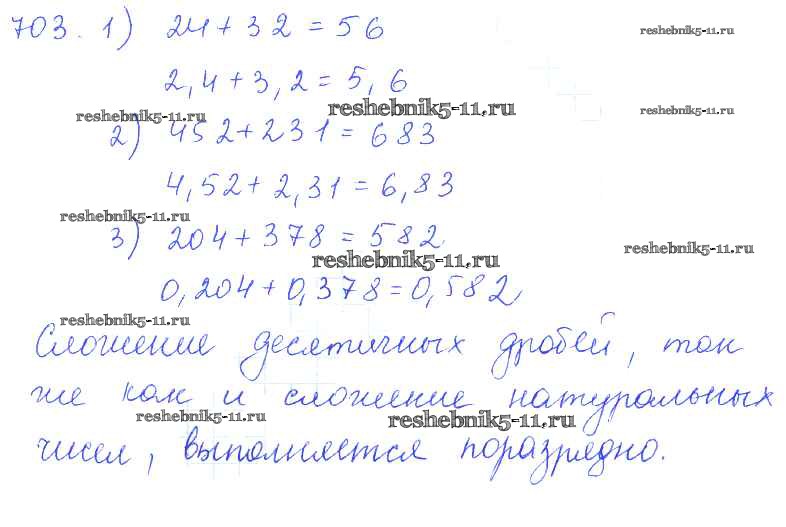 703. 1) 24 + 32 = 56
reshebnik5-11.ru
2,4 + 3,2 = 5,6
reshebnik5-11.ru
reshebnik5-11.ru
reshebnik5-11.ru
2) 452 + 231 = 683
4,52 + 2,31 = 6,83
reshebnik5-11.ru
3) 204 + 378 = 582
reshebnik5-11.ru
reshebnik5-11.ru
0,204 + 0,378 = 0,582
reshebnik5-11.ru
Сложение десятичных дробей, так
же как и сложение натуральных
reshebnik5-11.ru
reshebnik5-11.ru
чисел, выполняется поразрядно.